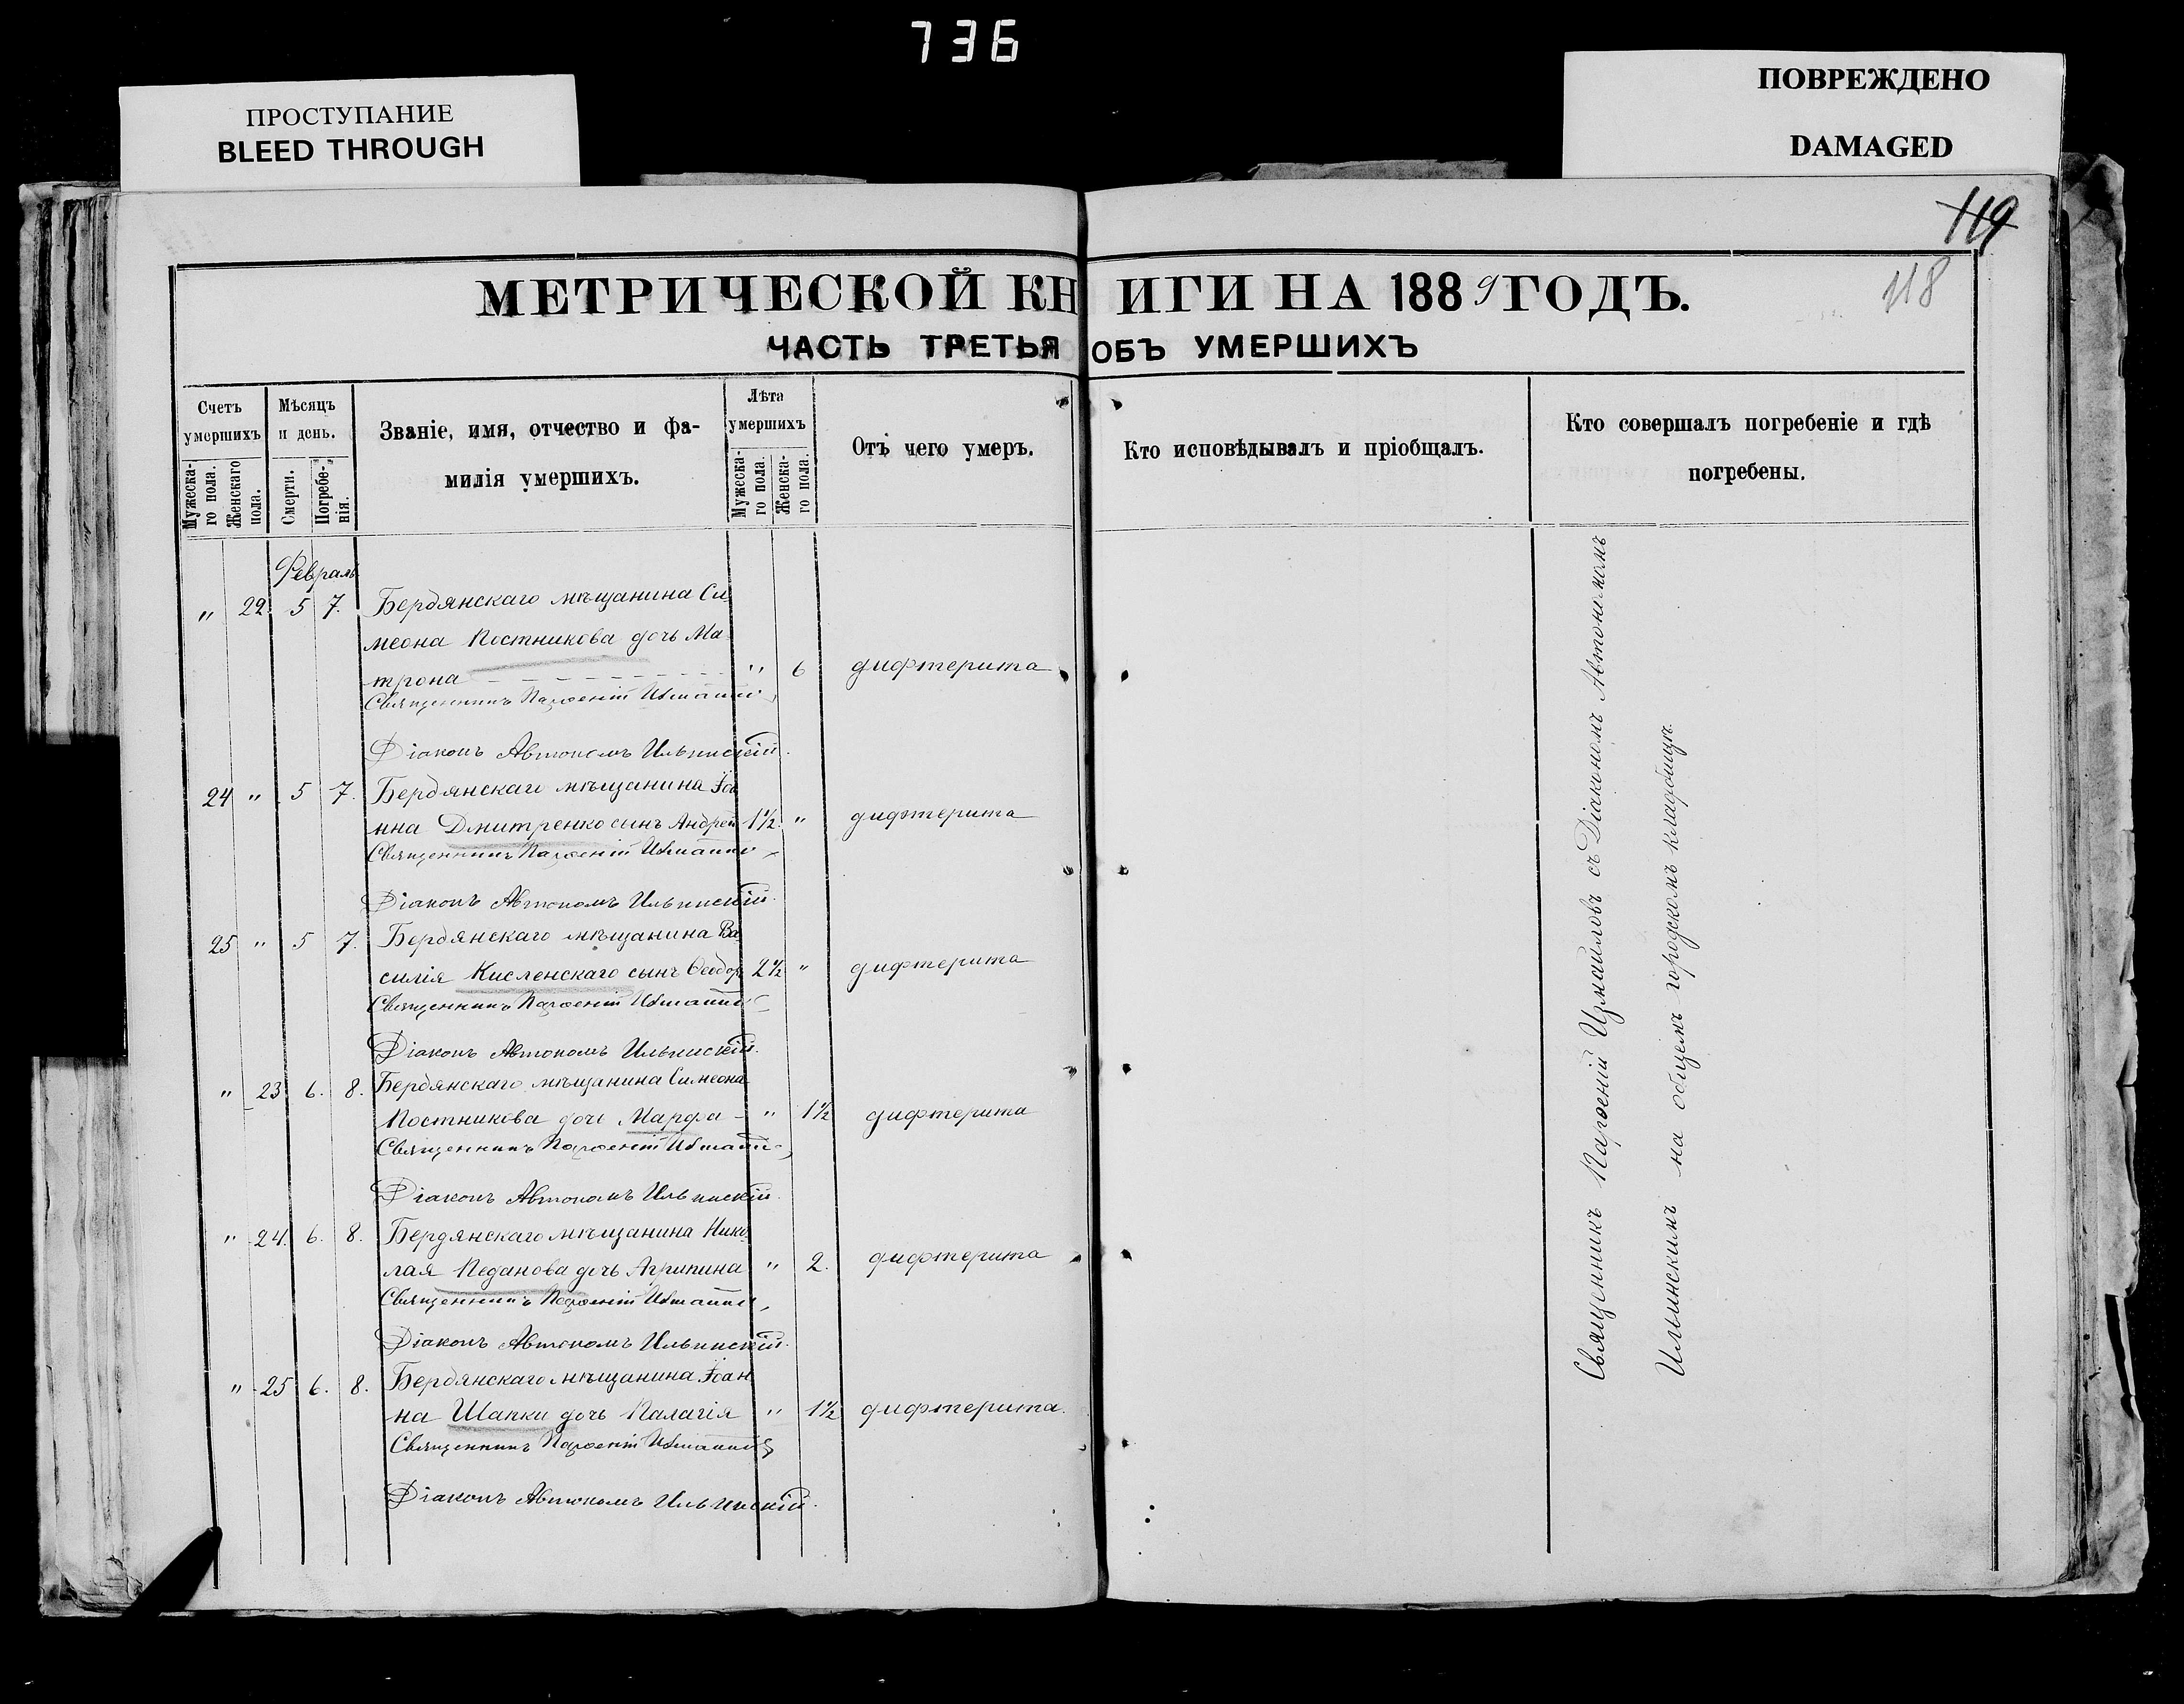 736
ПРОСТУПАНИЕ
BLEED THROUGH
ПОВРЕЖДЕНО
DAMAGED
119
118
МЕТРИЧЕСКОЙ КНИГИ НА 1889 ГОДЪ.
ЧАСТЬ ТРЕТЬЯ ОБЪ УМЕРШИХЪ
Счетъ умершихъ
Мужеска-
го пола.
Женскаго
пола.
Мѣсяцъ и день.
Смерти.
Погребе-
нія.
Званіе, имя, отчество и фа-
милія умершихъ.
Лѣта умершихъ
Мужеска-
го пола.
Женска-
го пола.
Отъ чего умеръ.
Кто исповѣдывалъ и пріобщалъ.
Кто совершалъ погребеніе и гдѣ
погребены.
Февраль
" 22. 5 7. Бердянскаго мѣщанина Си-
меона Постникова дочь Ма-
трона " 6 дифтерита
Священникъ Парѳеній Измаиловъ
Діаконъ Автономъ Ильинскій.
24 " 5 7. Бердянскаго мѣщанина Іоа
нна Дмитренко сынъ Андрей 1½ " дифтерита
Священникъ Парѳеній Измаиловъ
Діаконъ Автономъ Ильинскій.
25 " 5 7. Бердянскаго мѣщанина Ва
силія Кисленскаго сынъ Ѳеодоръ 2½ " дифтерита
Священникъ Парѳеній Измаиловъ
Діаконъ Автономъ Ильинскій.
" 23. 6. 8. Бердянскаго мѣщанина Симеона
Постникова дочь Марфа - " 1½ дифтерита
Священникъ Парѳеній Измаиловъ
Діаконъ Автономъ Ильинскій.
" 24. 6. 8. Бердянскаго мѣщанина Нико
лая Педанова дочь Агрипина " 2. дифтерита
Священникъ Парѳеній Измаиловъ
Діаконъ Автономъ Ильинскій.
" 25 6. 8. Бердянскаго мѣщанина Іоан
на Шапки дочь Палагія " 1½ дифтерита.
Священникъ Парѳеній Измаиловъ
Діаконъ Автономъ Ильинскій.
Священникъ Парѳеній Измаиловъ съ Діакономъ Автономомъ
Ильинскимъ на общемъ городскомъ кладбищѣ.